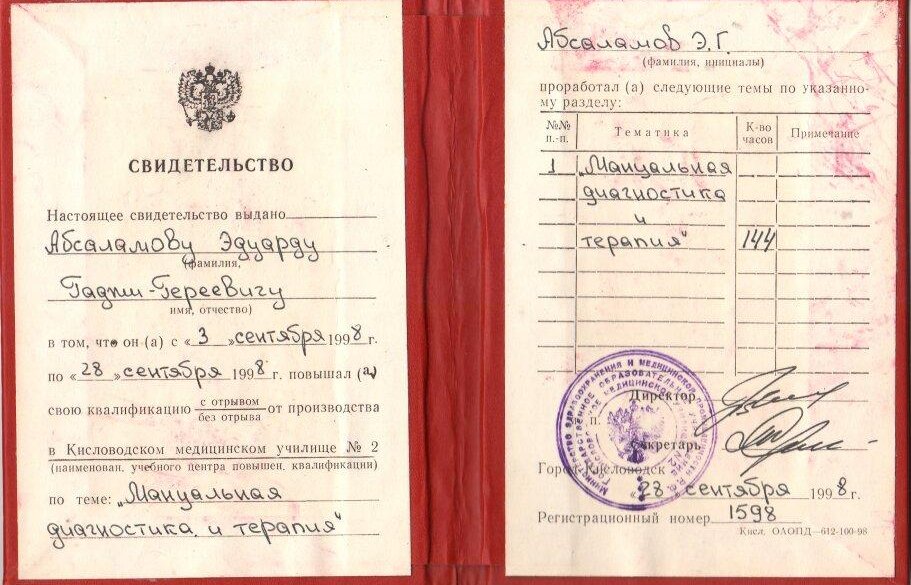 СВИДЕТЕЛЬСТВО
Настоящее свидетельство выдано
Абсаламову Эдуарду
(фамилия,
Гаджи-Гереевичу
имя, отчество)
в том, что он (а) с «3» сентября 1998 г.
по «28» сентября 1998 г. повышал (а)
свою квалификацию с отрывом от производства
без отрыва
в Кисловодском медицинском училище № 2
(наименован. учебного центра повышен. квалификации)
по теме: „Мануальная
диагностика и терапия"
Абсаламов Э.Г.
(фамилия, инициалы)
проработал (а) следующие темы по указанно-
му разделу:
№№ п.-п. Тематика К-во часов Примечание
1 „Мануальная
диагностика
и
терапия" 144
Директор
Секретарь
Город Кисловодск
«28» сентября 1998 г.
Регистрационный номер 1598
Кисл. ОАОПД—612-100-98